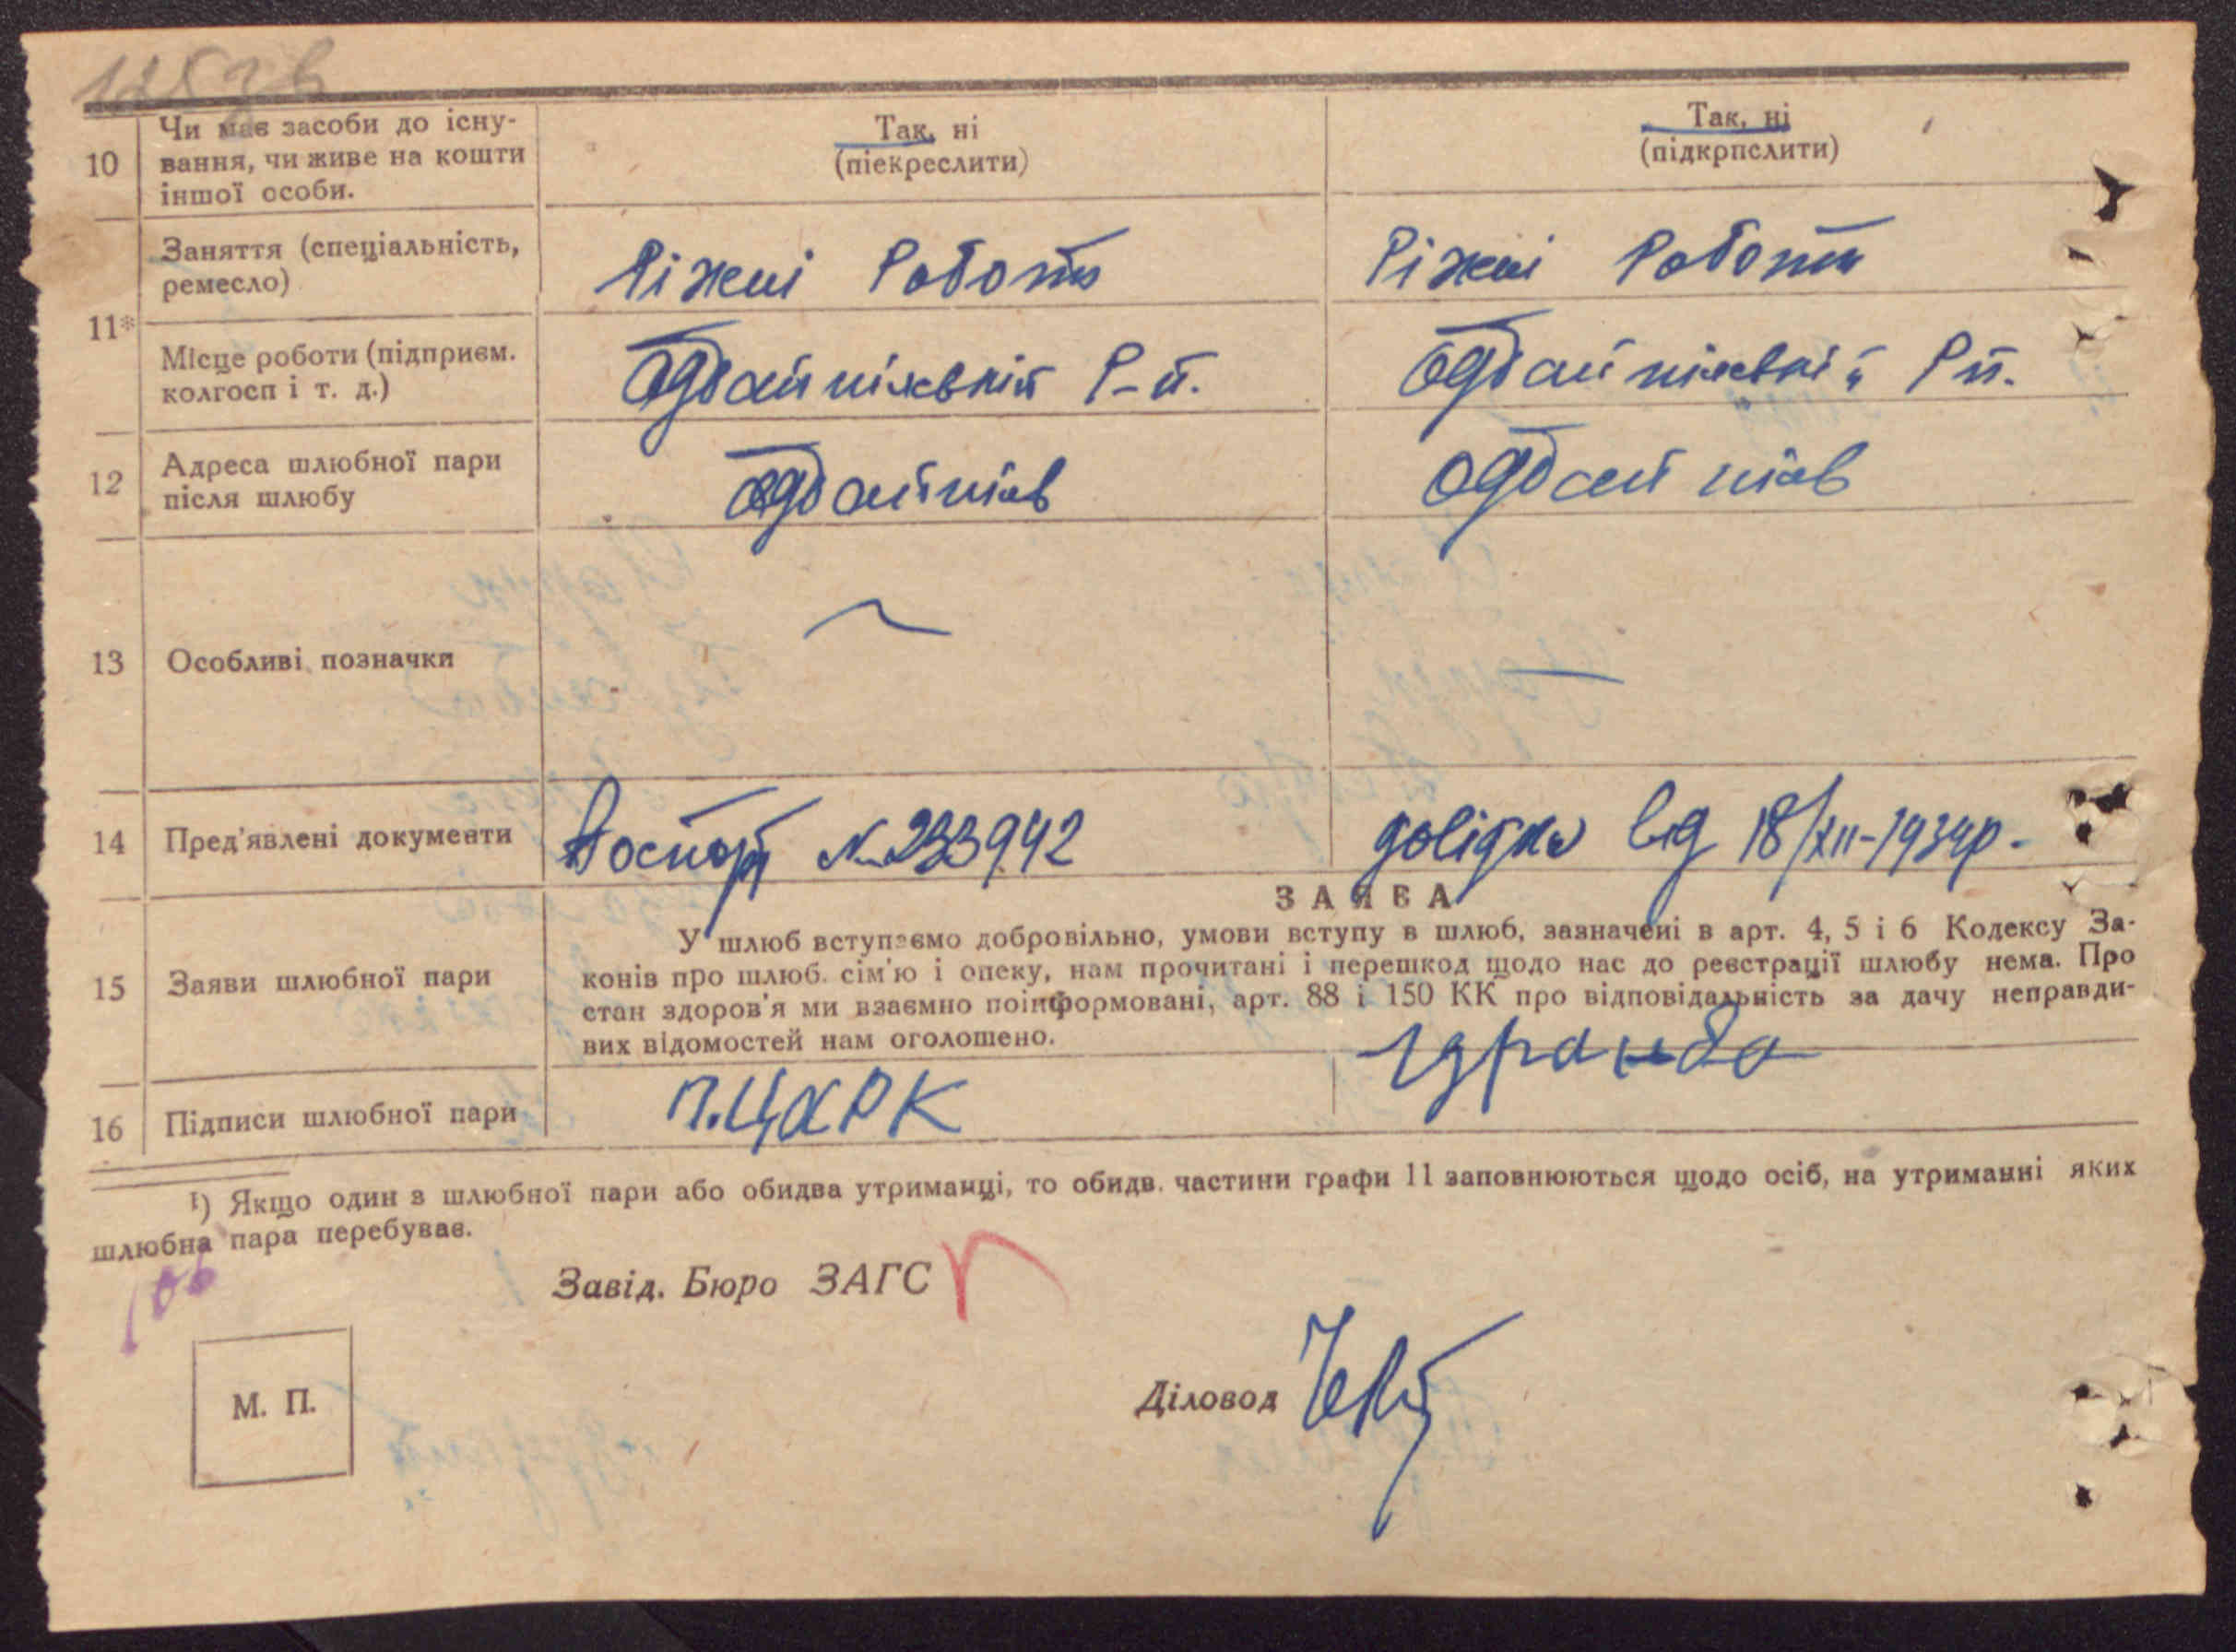 10
Чи має засоби до існу-
вання, чи живе на кошти
іншої особи.
Так, ні
(піекреслити)
Так, ні
(підкрпслити)
11*
Заняття (спеціальність,
ремесло)
Ріжні Роботи
Ріжні Роботи
Місце роботи (підприєм.
колгосп і т. д.)
Р-й.
Рй.
12
Адреса шлюбної пари
після шлюбу
13
Особливі позначки
14
Пред'явлені документи
Поспорт № 233942
довідка від 18/XII-1934р.
ЗАЯВА
15
Заяви шлюбної пари
У шлюб вступаємо добровільно, умови вступу в шлюб, зазначені в арт. 4, 5 і 6 Кодексу За-
конів про шлюб. сім'ю і опеку, нам прочитані і перешкод щодо нас до реєстрації шлюбу нема. Про
стан здоров'я ми взаємно поінформовані, арт. 88 і 150 КК про відповідальність за дачу неправди-
вих відомостей нам оголошено.
16
Підписи шлюбної пари
П.ЦАРК
¹) Якщо один з шлюбної пари або обидва утриманці, то обидв. частини графи 11 заповнюються щодо осіб, на утриманні яких
шлюбна пара перебуває.
Завід. Бюро ЗАГС
М. П.
Діловод